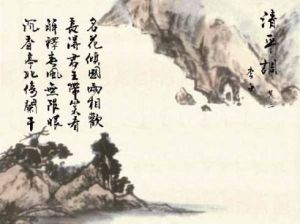 清平調 其三
李白
名花傾國兩相歡
長得君王帶笑看
解釋春風無限恨
沉香亭北倚闌干